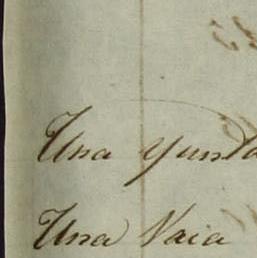 Una yunta
Una Vaca